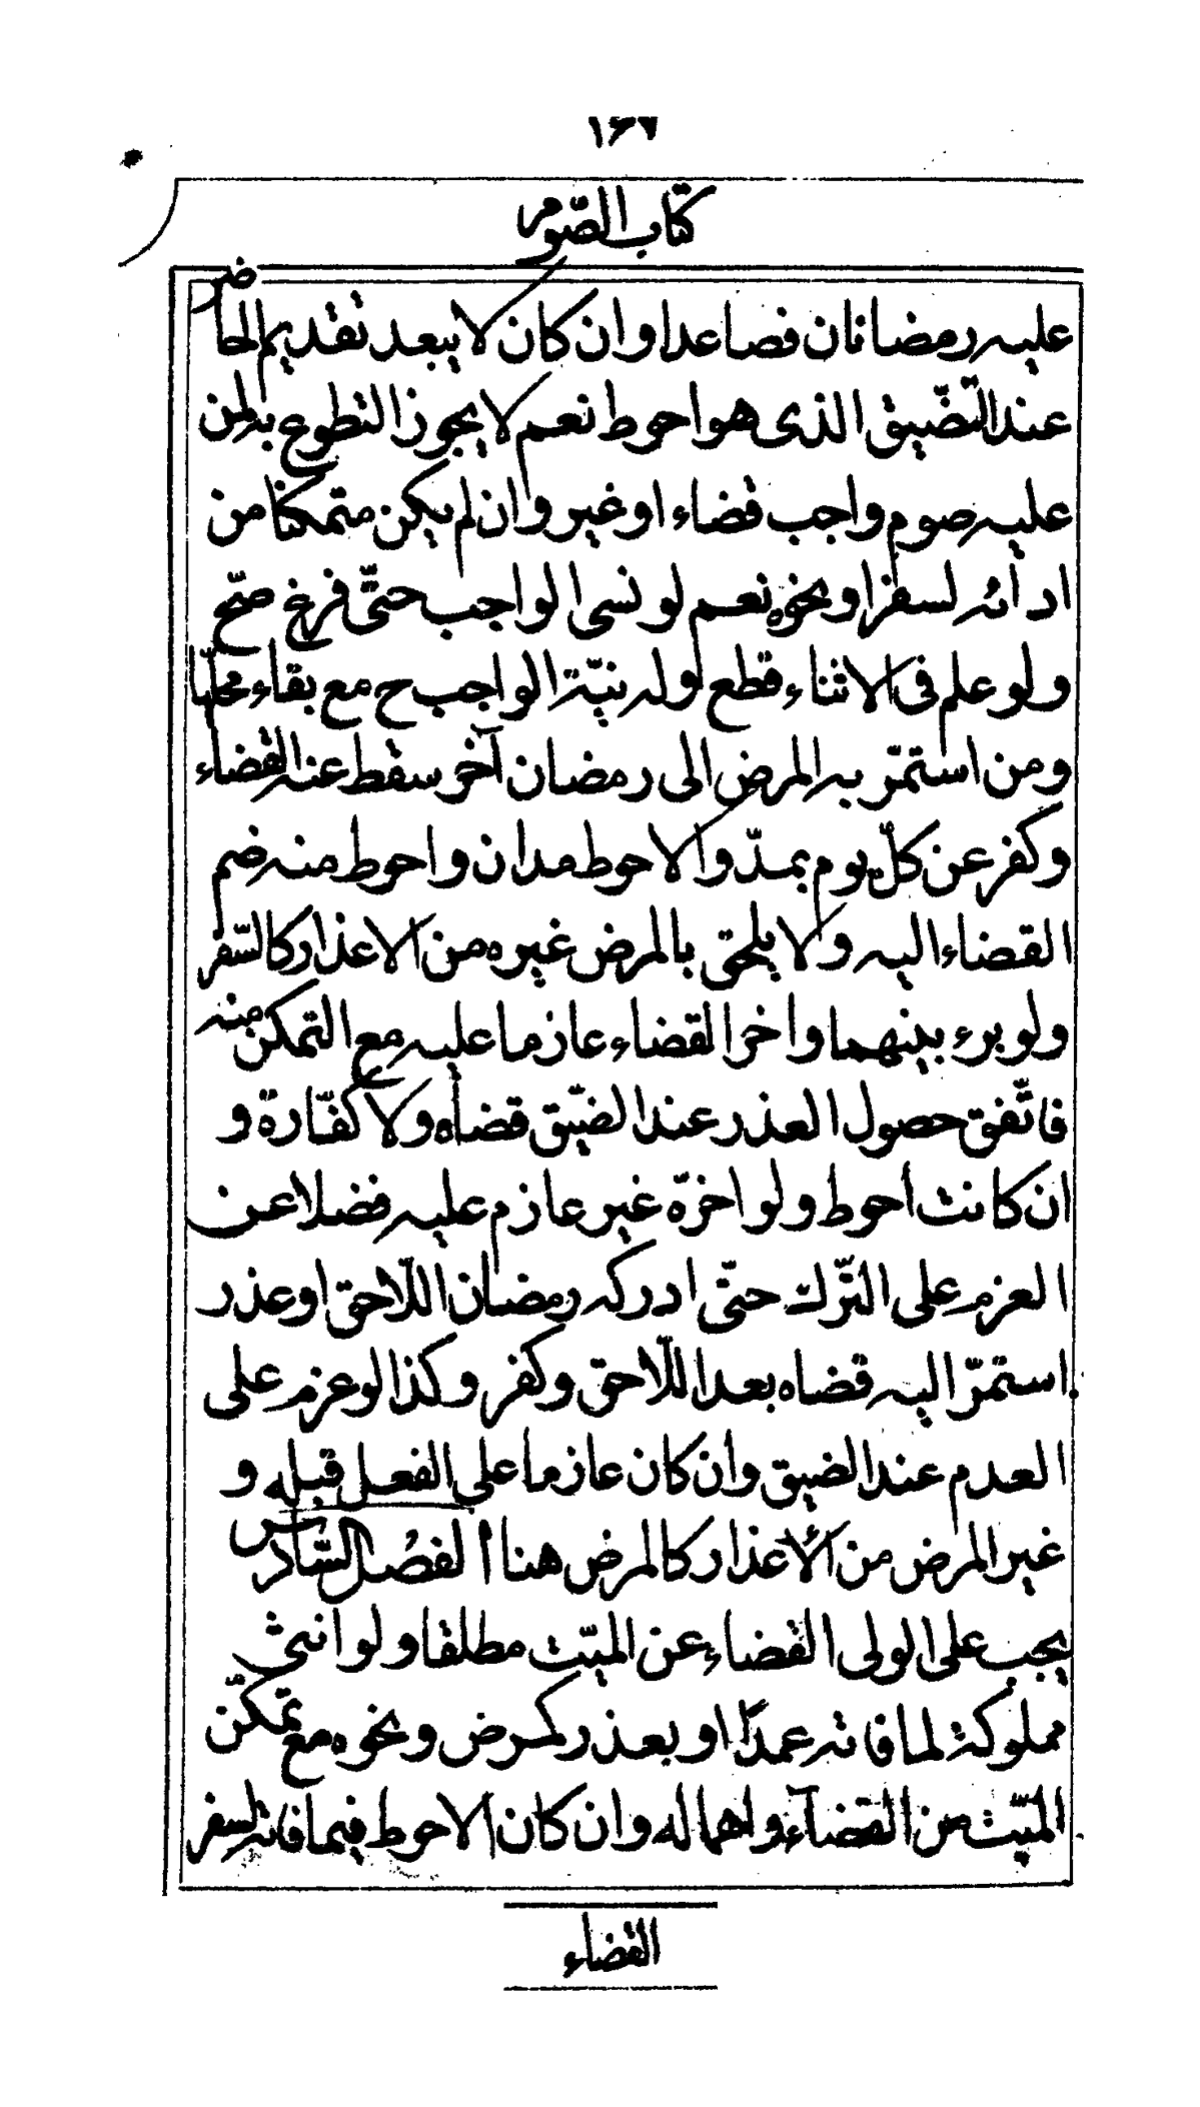 ١٦٦
كتاب الصّوم
عليه رمضانان فصاعدا وان كان لا يبعد تقديم الحاضر
عند التضّيق الذى هو احوط نعم لا يجوز التطوع به لمن
عليه صوم واجب قضاء او غير وان لم يكن متمكنا من
ادائه لسفر او نحوه نعم لو نسى الواجب حتّى فرغ صحّ
ولو علم فى الاثناء قطع وله نيّة الواجب ح مع بقاء محلّها
ومن استمرّ به المرض الى رمضان آخر سقط عنه القضاء
وكفر عن كلّ يوم بمدّ والاحوط مدان واحوط منه ضم
القضاء اليه ولا يلحق بالمرض غيره من الاعذار كالسّفر
ولو برء بينهما واخر القضاء عازما عليه مع التمكن منه
فاتّفق حصول العذر عند الضيّق قضاه ولا كفّارة و
ان كانت أحوط ولو اخرّه غير عازم عليه فضلا عن
العزم على التّرك حتّى ادركه رمضان اللّاحق او عذر
استمرّ اليه قضاه بعد اللّاحق وكفر وكذا لو عزم على
العدم عند الضيق وان كان عازما على الفعل قبله و
غير المرض من الأعذار كالمرض هنا الفصل السّادس
يجب على الولى القضاء عن الميّت مطلقا ولو انثى
مملوكة لما فاته عمدًا او بعذر كمرض ونحوه مع تمكّن
الميّت من القضآء واهماله وان كان الاحوط فيما فاته لسفر
القضاء